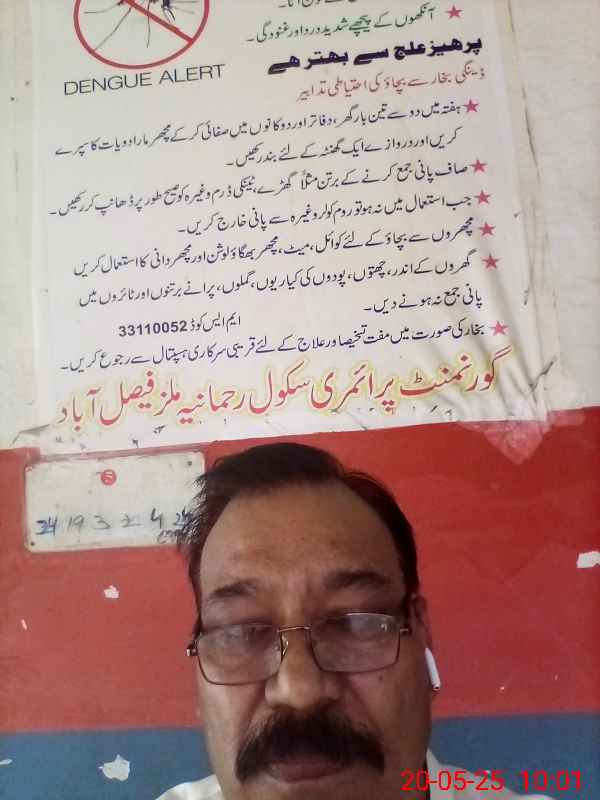 آنکھوں کے پیچھے شدید درد اور غنودگی۔
DENGUE ALERT
پرھیز علج سے بھتر ھے
ڈینگی بخار سے بچاؤ کی احتیاطی تدابیر
ہفتہ میں دو سے تین بار گھر، دفاتر اور دوکانوں میں صفائی کر کے مچھر مار ادویات کا سپرے
کریں اور دروازے ایک گھنٹہ کے لئے بند رکھیں۔
صاف پانی جمع کرنے کے برتن مثلاً گھڑے، ٹینکی ڈرم وغیرہ کو صیح طور پر ڈھانپ کر رکھیں۔
جب استعمال میں نہ ہو تو روم کولر وغیرہ سے پانی خارج کریں۔
مچھروں سے بچاؤ کے لئے کوائل، میٹ، مچھر بھگاؤ لوشن اور مچھر دانی کا استعمال کریں
گھروں کے اندر، چھتوں، پودوں کی کیاریوں، گملوں، پرانے برتنوں اور ٹائروں میں
پانی جمع نہ ہونے دیں۔
ایم ایس کوڈ 33110052
بخار کی صورت میں مفت تشخیص اور علاج کے لئے قریبی سرکاری ہسپتال سے رجوع کریں۔
گورنمنٹ پرائمری سکول رحمانیہ ملز فیصل آباد
5
34 19 3 2 4 24
20-05-25 10:01